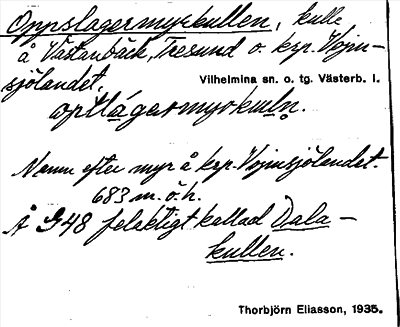 Oppslagermyrkullen, kulle
å Västanbäck, Tresund o. krp. Vojm-
sjölandet.
Vilhelmina sn. o. tg. Västerb. l.
optlágermyrkuln.
Namn efter myr å krp. Vojmsjölandet.
683 m. ö. h.
Å G48 felaktigt kallad Dala-
kullen.
Thorbjörn Eliasson, 1935.